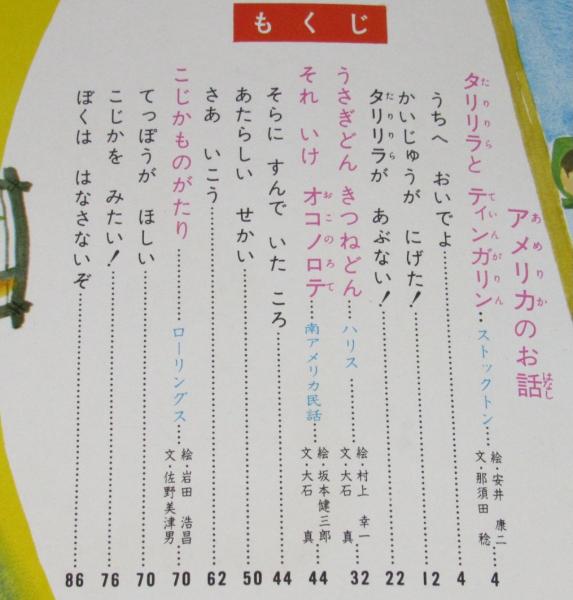 もくじ
アメリカのお話
あめりか はなし
タリリラと ティンガリン‥ストックトン‥‥絵・安井 康二 文・那須田 稔 4
たりりら てぃんがりん
うちへ おいでよ‥‥4
かいじゅうが にげた!‥‥12
タリリラが あぶない!‥‥22
たりりら
うさぎどん きつねどん‥‥ハリス‥‥絵・村上 幸一 文・大石 真 32
それ いけ オコノロテ‥‥南アメリカ民話‥‥絵・坂本健三郎 文・大石 真 44
おこのろて
そらに すんで いた ころ‥‥44
あたらしい せかい‥‥50
さあ いこう‥‥62
こじかものがたり‥‥ローリングス‥‥絵・岩田 浩昌 文・佐野美津男 70
てっぽうが ほしい‥‥70
こじかを みたい!‥‥76
ぼくは はなさないぞ‥‥86